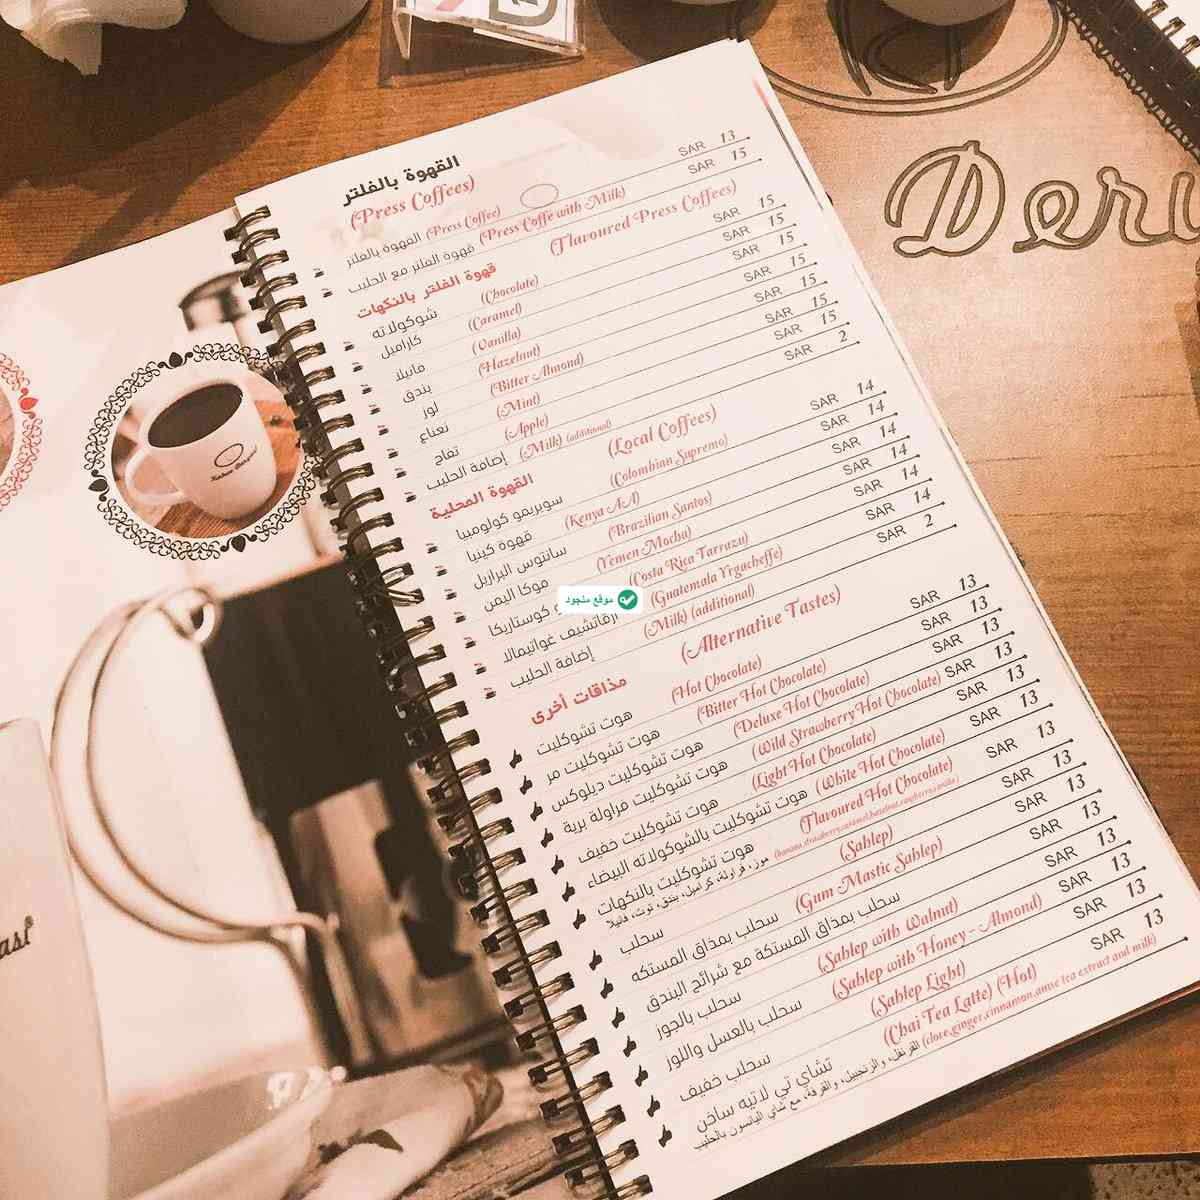 القهوة بالفلتر
(Press Coffees)
القهوة بالفلتر (Press Coffee) SAR 13
قهوة الفلتر مع الحليب (Press Coffe with Milk) SAR 15
قهوة الفلتر بالنكهات (Flavoured Press Coffees)
شوكولاته (Chocolate) SAR 15
كاراميل (Caramel) SAR 15
فانيلا (Vanilla) SAR 15
بندق (Hazelnut) SAR 15
لوز (Bitter Almond) SAR 15
نعناع (Mint) SAR 15
تفاح (Apple) SAR 15
إضافة الحليب (Milk) (additional) SAR 2
القهوة المحلية (Local Coffees)
سوبريمو كولومبيا (Colombian Supremo) SAR 14
قهوة كينيا (Kenya AA) SAR 14
سانتوس البرازيل (Brazilian Santos) SAR 14
موكا اليمن (Yemen Mocha) SAR 14
كوستاريكا (Costa Rica Tarrazu) SAR 14
ارقاتشيف غواتيمالا (Guatemala Yrgacheffe) SAR 14
إضافة الحليب (Milk) (additional) SAR 2
مذاقات أخرى (Alternative Tastes)
هوت تشوكليت (Hot Chocolate) SAR 13
هوت تشوكليت مر (Bitter Hot Chocolate) SAR 13
هوت تشوكليت ديلوكس (Deluxe Hot Chocolate) SAR 13
هوت تشوكليت فراولة برية (Wild Strawberry Hot Chocolate) SAR 13
هوت تشوكليت خفيف (Light Hot Chocolate) SAR 13
هوت تشوكليت بالشوكولاته البيضاء (White Hot Chocolate)
هوت تشوكليت بالنكهات (Flavoured Hot Chocolate) SAR 13
موز، فراولة، كراميل، بندق، توت، فانيلا (banana, strawberry, caramel, hazelnut, raspberry, vanilla)
سحلب (Sahlep) SAR 13
سحلب بمذاق المستكه (Gum Mastic Sahlep) SAR 13
سحلب بمذاق المستكة مع شرائح البندق SAR 13
سحلب بالجوز (Sahlep with Walnut) SAR 13
سحلب بالعسل واللوز (Sahlep with Honey - Almond) SAR 13
سحلب خفيف (Sahlep Light) SAR 13
تشاي تي لاتيه ساخن (Chai Tea Latte) (Hot) SAR 13
القرنفل، والزنجبيل، والقرفة، مع شاي اليانسون بالحليب (clove, ginger, cinnamon, anise tea extract and milk)
موقع منجود
Deru
asi